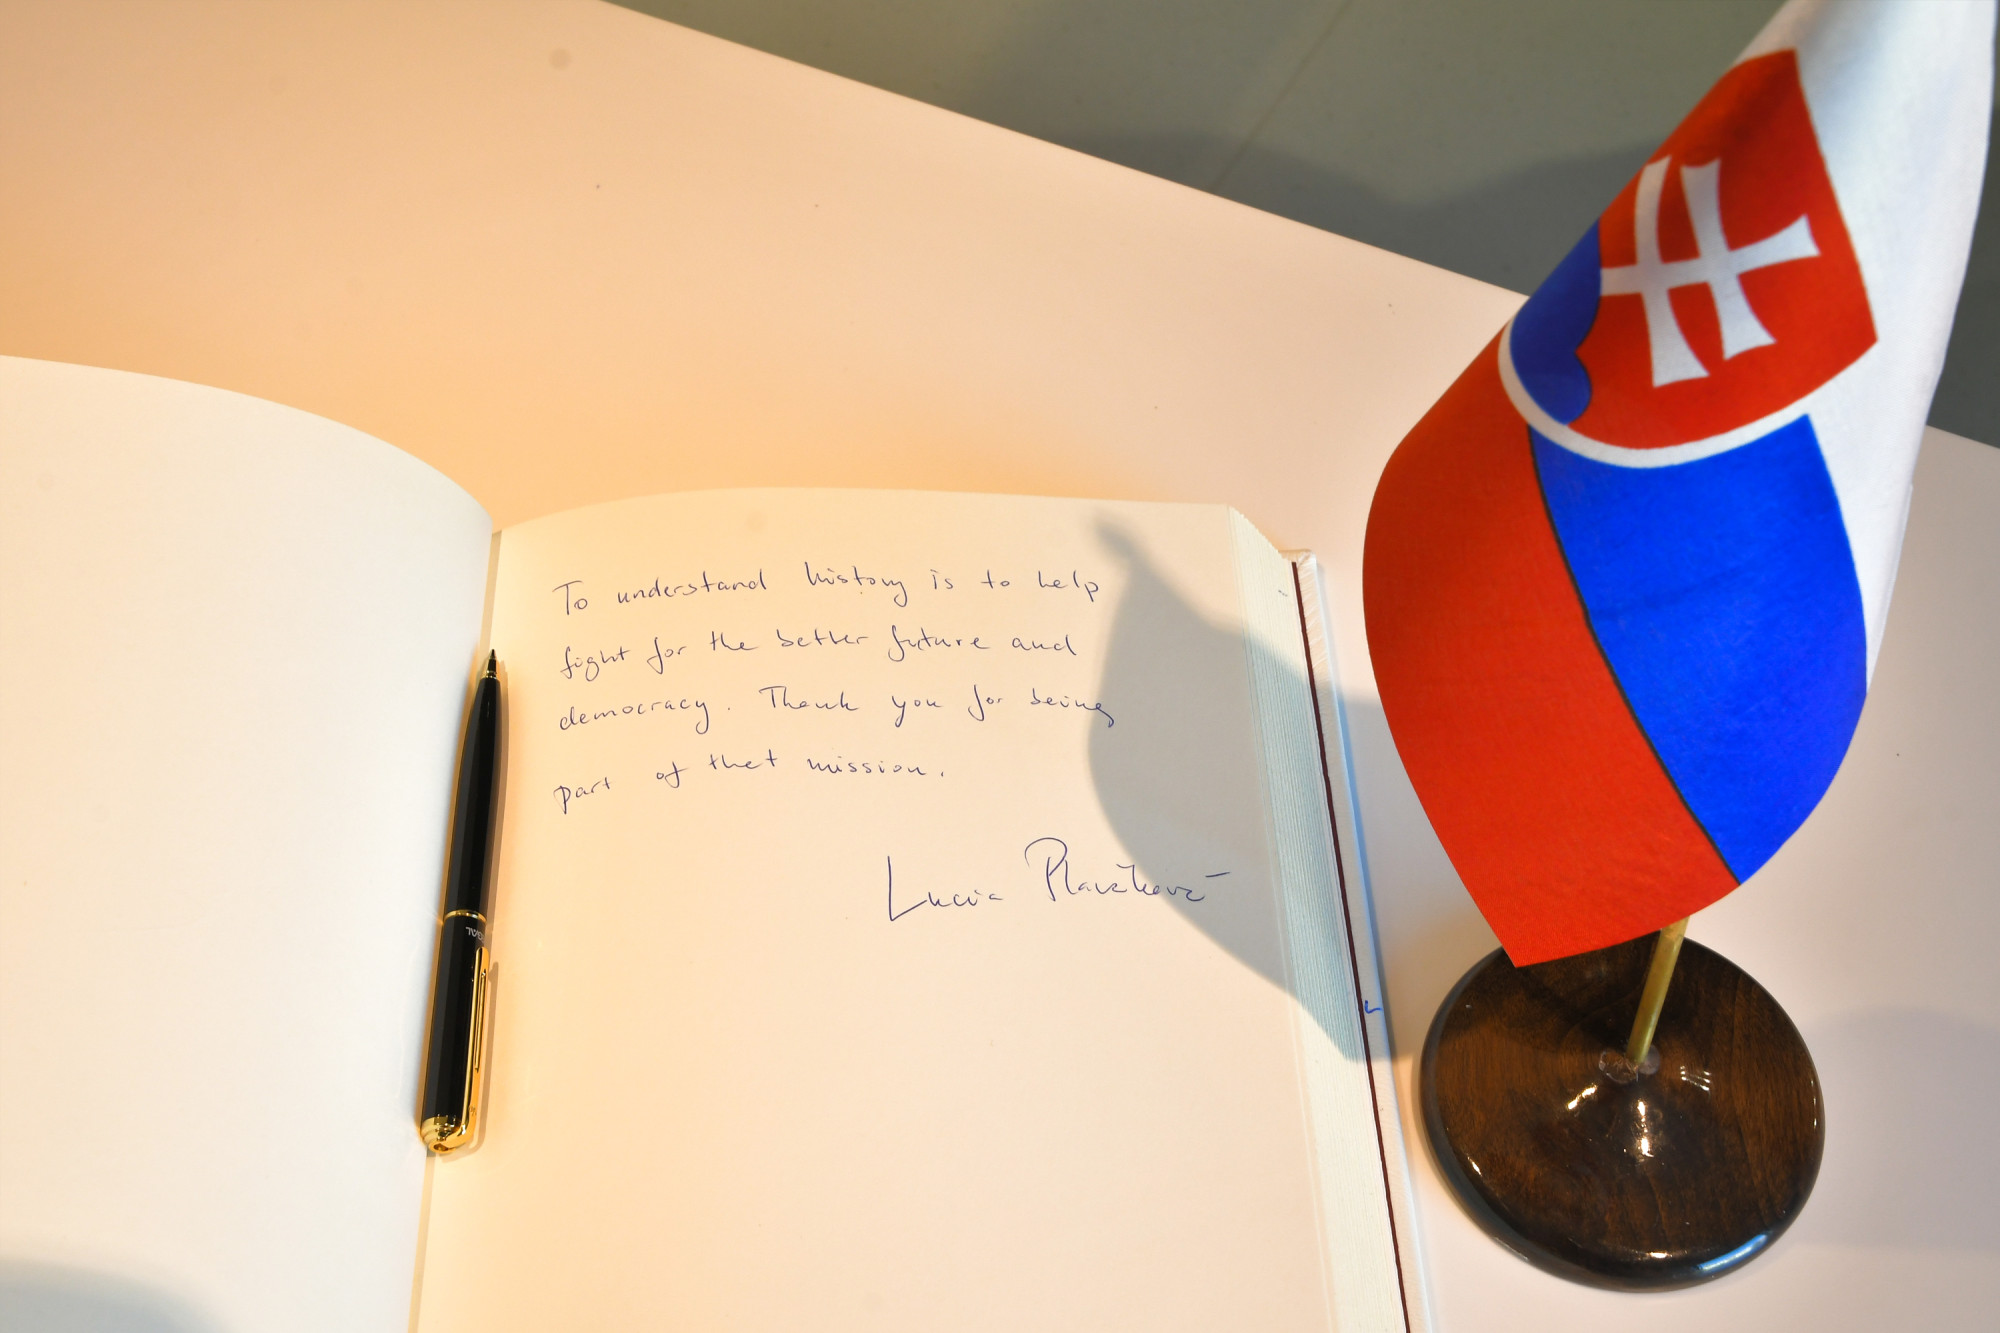 To understand history is to help
fight for the better future and
democracy. Thank you for being
part of that mission.
Lucia Plaváková